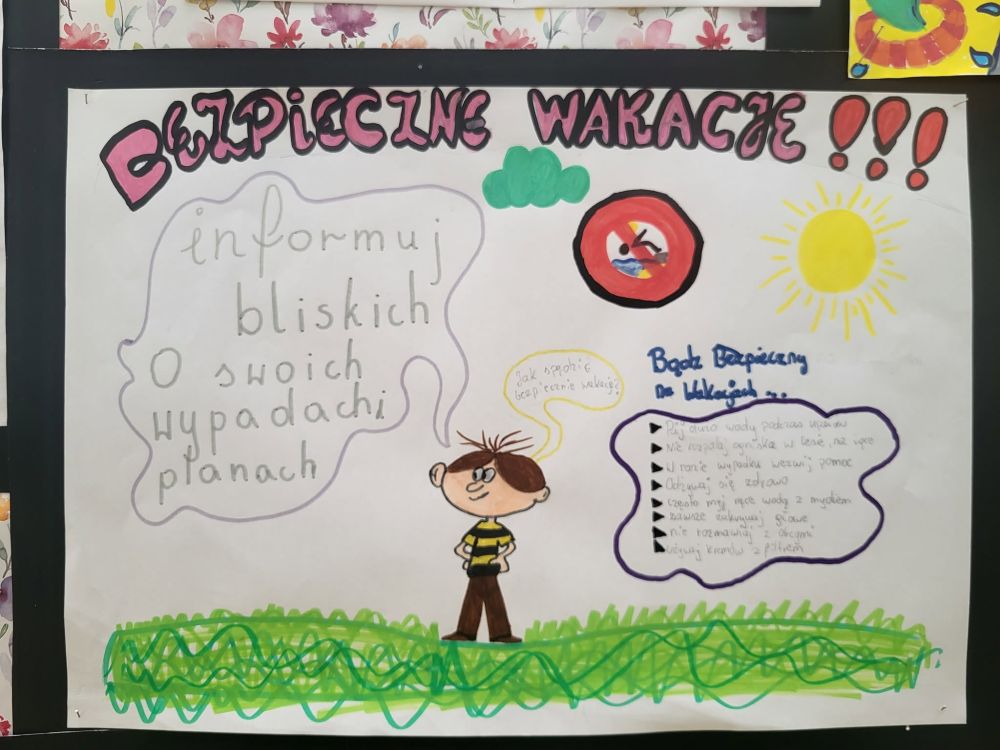 BEZPIECZNE WAKACJE !!!
informuj
bliskich
O swoich
wypadach i
planach
Jak spędzić
bezpiecznie wakacje?
Bądz Bezpieczny
na Wakacjach ...
Pij dużo wody podczas upałów
Nie rozpalaj ogniska w lesie, na łące
W razie wypadku wezwij pomoc
Odżywaj się zdrowo
często myj ręce wodą z mydłem
zawsze zakrywaj głowę
nie rozmawiaj z obcymi
używaj kremów z filtrem